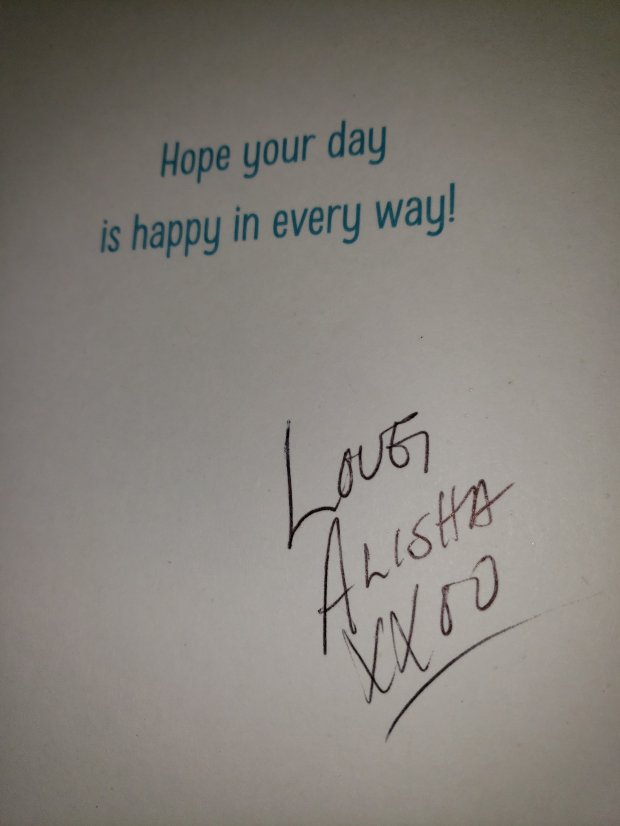 Hope your day
is happy in every way!
LOVE,
ALISHA
XXOO